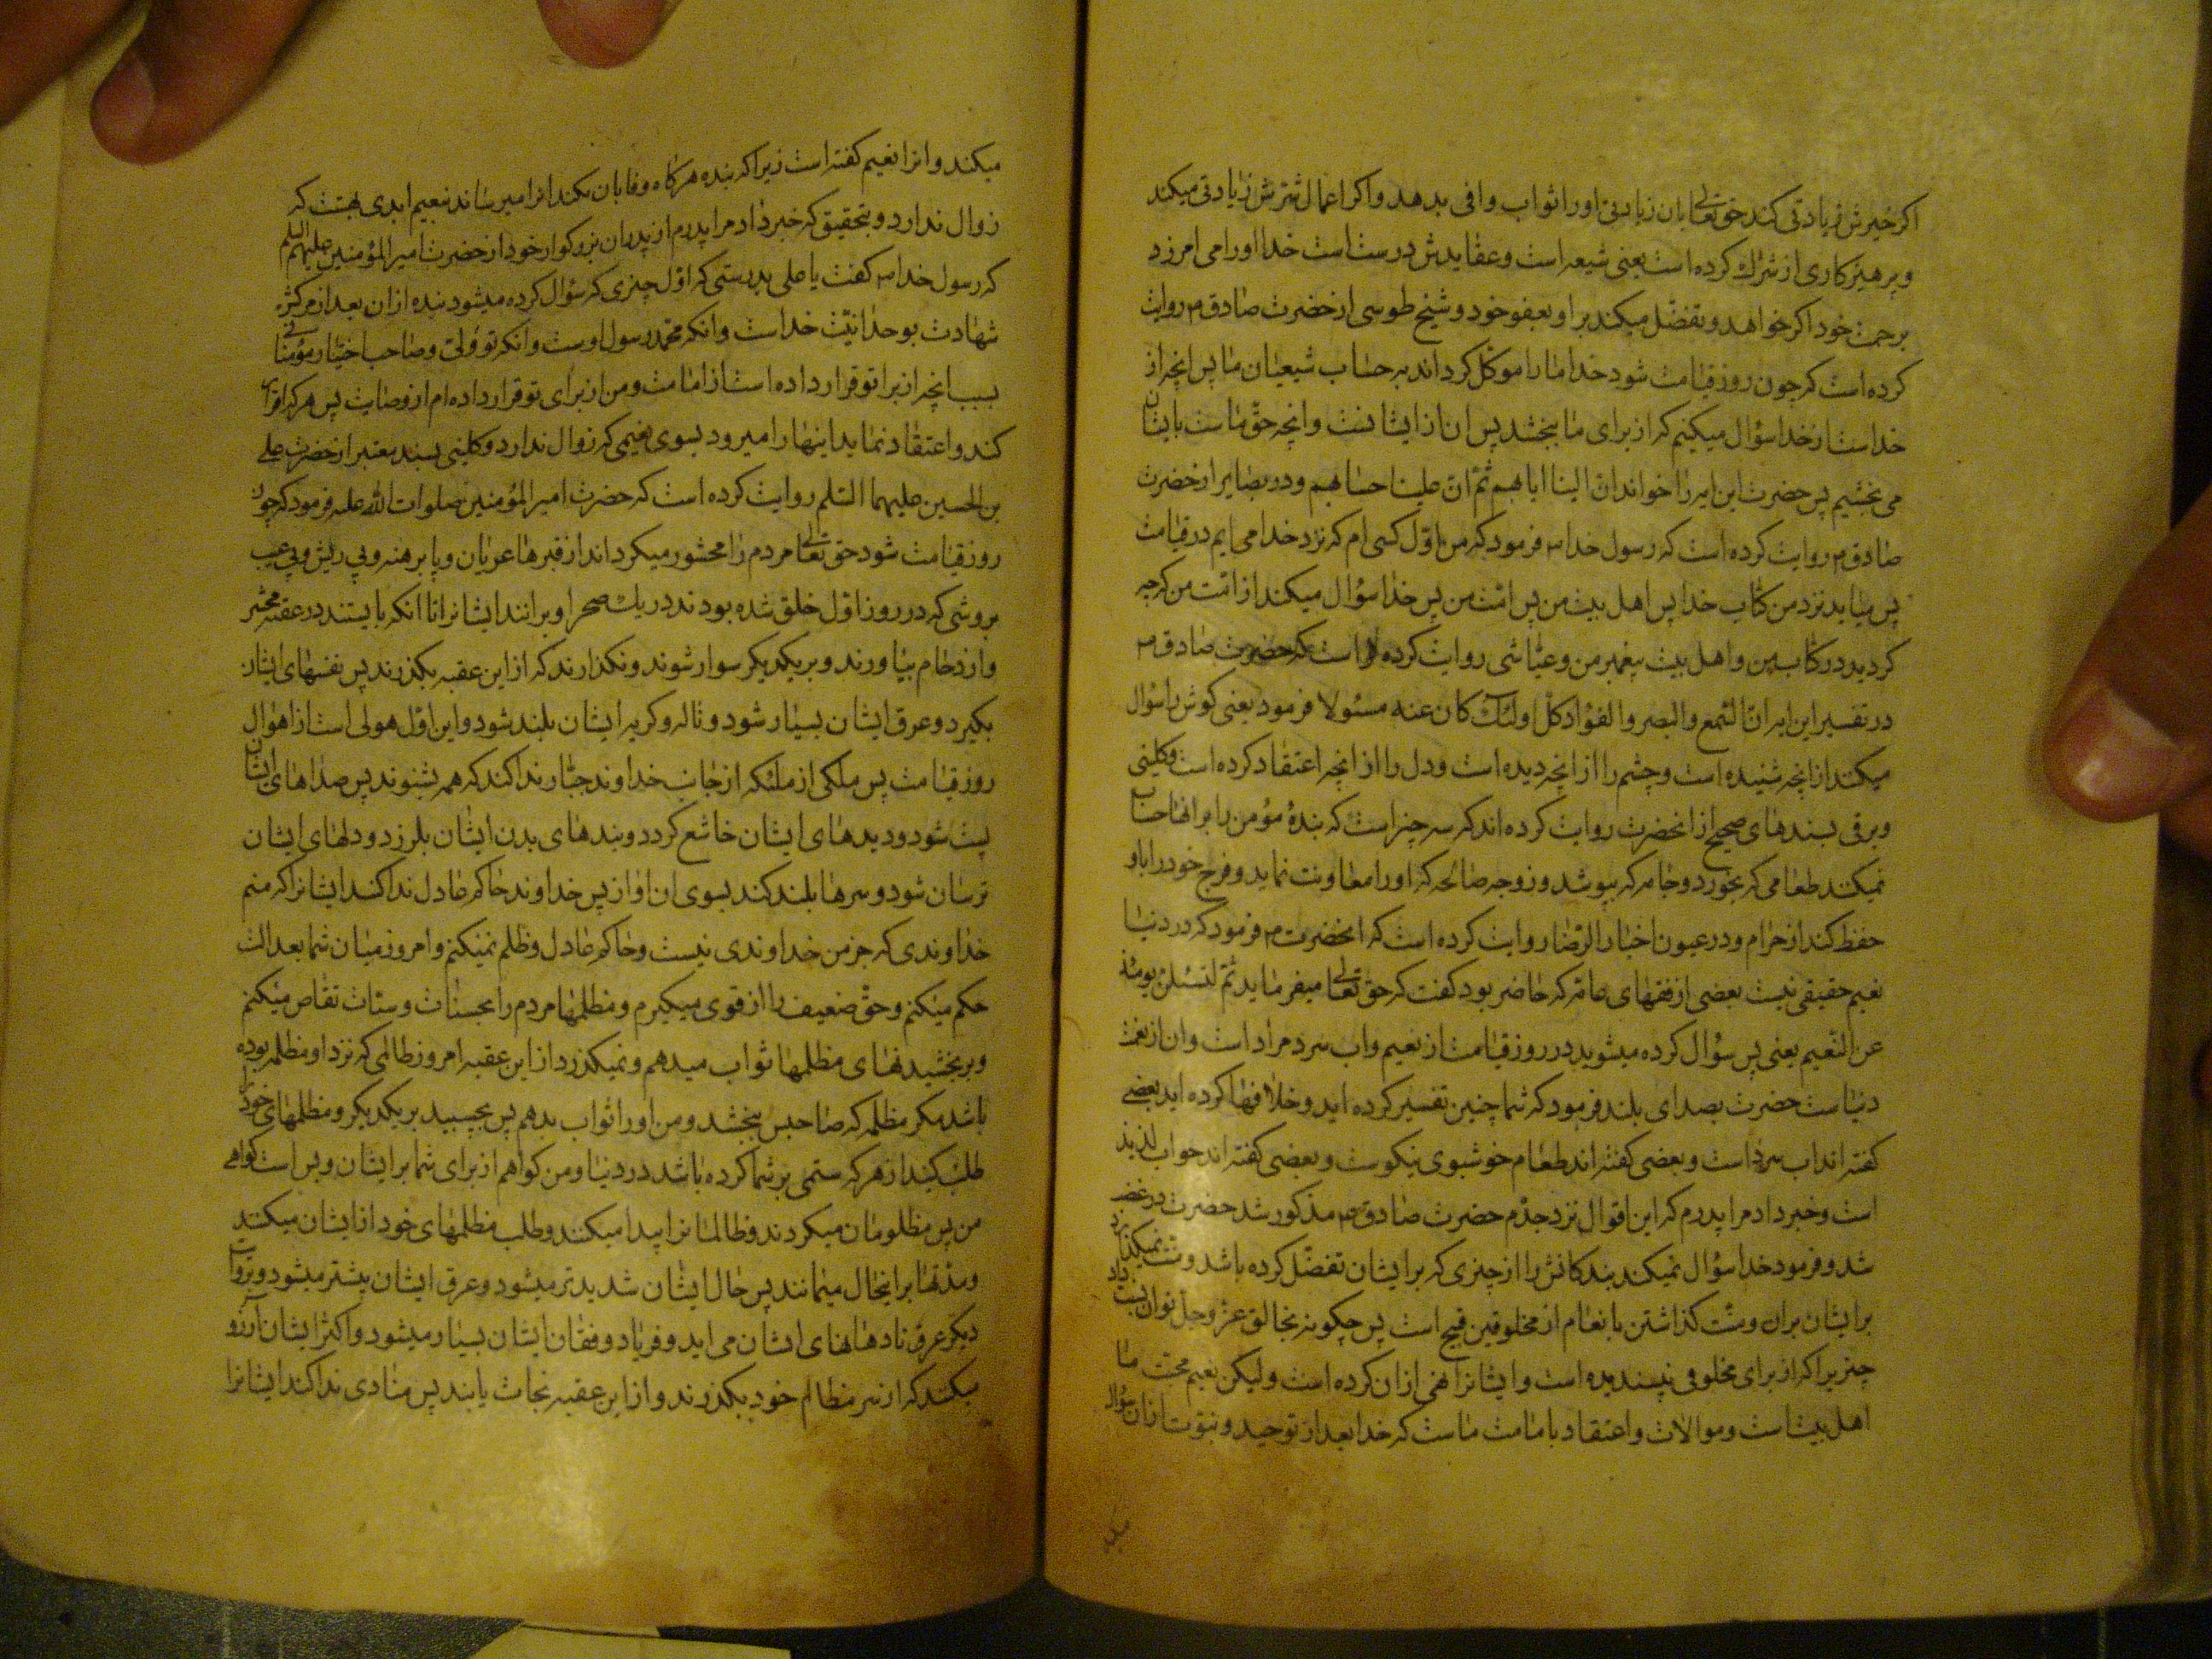 اکر خیرش زیادتی کند حق تعالی بان زیادتی او را ثواب وافی بدهد و اکر اعمال شرش زیادتی میکند
و پرهیزکاری از شرک کرده است یعنی شیعه است و عقایدش درست است خدا او را می امرزد
برحمت خود اکر خواهد و تفضل میکند بر او بعفو خود و شیخ طوسی از حضرت صادق ع روایت
کرده است که چون روز قیامت شود خدا ما را موکل کرداند به حساب شیعیان ما پس انچه از
خداست از خدا سؤال میکنیم که از برای ما ببخشد پس ان از ایشانست و انچه حق ماست بایشان
می بخشیم پس حضرت این ایه را خواند ان الینا ایابهم ثم ان علینا حسابهم و در بصایر از حضرت
صادق ع روایت کرده است که رسول خدا ص فرمود که من اول کسی ام که نزد خدا می ایم در قیامت
پس میاید نزد من کتاب خدا پس اهل بیت من پس امت من پس خدا سؤال میکند از امت من که چه
کردید در کتاب من و اهل بیت پیغمبر من و عیاشی روایت کرده است که حضرت صادق ع
در تفسیر این ایه ان السمع و البصر و الفؤاد کل اولئک کان عنه مسئولا فرمود یعنی کوش را سؤال
میکند از انچه شنیده است و چشم را از انچه دیده است و دل را از انچه اعتقاد کرده است و کلینی
و برقی بسندهای صحیح از انحضرت روایت کرده اند که سه چیز است که بندهٔ مؤمن را بر انها حساب
نمیکند طعامی که بخورد و جامه که بپوشد و زوجه صالحه که او را معاونت نماید و فرج خود را باو
حفظ کند از حرام و در عیون اخبار الرضا روایت کرده است که انحضرت ع فرمود که در دنیا
نعیم حقیقی نیست بعضی از فقهای عامه که حاضر بود کفت که حق تعالی میفرماید ثم لتسئلن یومئذ
عن النعیم یعنی پس سؤال کرده میشوید در روز قیامت از نعیم و اب سرد مراد است و ان از نعمت
دنیاست حضرت بصدای بلند فرمود که شما چنین تفسیر کرده اید و خلافها کرده اید بعضی
کفته اند اب سرد است و بعضی کفته اند طعام خوشبوی نیکوست و بعضی کفته اند خواب لذیذ
است و خبر داد مرا پدرم که این اقوال نزد جدم حضرت صادق ع مذکور شد حضرت در غضب
شد و فرمود خدا سؤال نمیکند بندکانش را از چیزی که بر ایشان تفضل کرده باشد و منت نمیکذارد
بر ایشان بران و منت کذاشتن بانعام از مخلوقین قبیح است پس چکونه بخالق عز و جل توان نسبت داد
چیزیرا که از برای مخلوقی نپسندیده است و ایشانرا نهی از ان کرده است ولیکن نعیم محبت ما
اهل بیتاست و موالات و اعتقاد بامامت ماست که خدا بعد از توحید و نبوت از ان سؤال
میکند
میکند و انرا نعیم کفته است زیرا که بنده هرکاه وفا بان بکند انرا میرساند بنعیم ابدی بهشت که
زوال ندارد و بتحقیق که خبر داد مرا پدرم از پدران بزرکوار خود از حضرت امیر المؤمنین علیهم السلم
که رسول خدا ص کفت یا علی بدرستی که اول چیزی که سؤال کرده میشود بنده ازان بعد از مرکش
شهادت بوحدانیت خداست و انکه محمد رسول اوست و انکه تو ولی و صاحب اختیار مؤمنانی
بسبب انچه از برا تو قرار داده است از امامت و من از برای تو قرار داده ام از وصایت پس هر که اقرار
کند و اعتقاد نماید اینها را میرود بسوی نعیمی که زوال ندارد و کلینی بسند معتبر از حضرت علی
بن الحسین علیهما السلم روایت کرده است که حضرت امیر المؤمنین صلوات الله علیه فرمود که چون
روز قیامت شود حق تعالی مردم را محشور میکرداند از قبرها عریان و پا برهنه و بی ریش و بی عیب
بروشی که در روز اول خلق شده بودند در یک صحرا و برانند ایشانرا تا انکه بایستند در عقبه محشر
و ازدحام بیاورند و بر یکدیکر سوار شوند و نکذارند که از این عقبه بکذرند پس نفسهای ایشان
بکیرد و عرق ایشان بسیار شود و ناله و کریه ایشان بلند شود و این اول هولی است از اهوال
روز قیامت پس ملکی از ملئکه از جانب خداوند جبار ندا کند که همه بشنوند پس صداهای ایشان
پست شود و دیدهای ایشان خاشع کردد و بندهای بدن ایشان بلرزد و دلهای ایشان
ترسان شود و سرها بلند کنند بسوی ان اواز پس خداوند حاکم عادل ندا کند ایشانرا که منم
خداوندی که جز من خداوندی نیست و حاکم عادل و ظلم نمیکنم و امروز میان شما بعدالت
حکم میکنم و حق ضعیف را از قوی میکیرم و مظلمهای مردم را بحسنات و سیئات تقاص میکنم
و بر بخشیدنهای مظلمها ثواب میدهم و نمیکذرد از این عقبه امروز ظالمی که نزد او مظلمه بوده
باشد مکر مظلمه که صاحبش ببخشد و من او را ثواب بدهم پس بچسبید بر یکدیکر و مظلمهای خود را
طلب کنید از هر که ستمی بر شما کرده باشد در دنیا و من کواهم از برای شما بر ایشان و بس است کواهی
من پس مظلومان میکردند و ظالمانرا پیدا میکنند و طلب مظلمهای خود از ایشان میکنند
و مدتها بر اینحال میمانند پس حال ایشان شدیدتر میشود و عرق ایشان بیشتر میشود و بروایت
دیکر عرق تا دهانهای ایشان می اید و فریاد و فغان ایشان بسیار میشود و اکثر ایشان آرزو
میکند که از سر مظالم خود بکذرند و از این عقبه نجات یابند پس منادی ندا کند ایشانرا